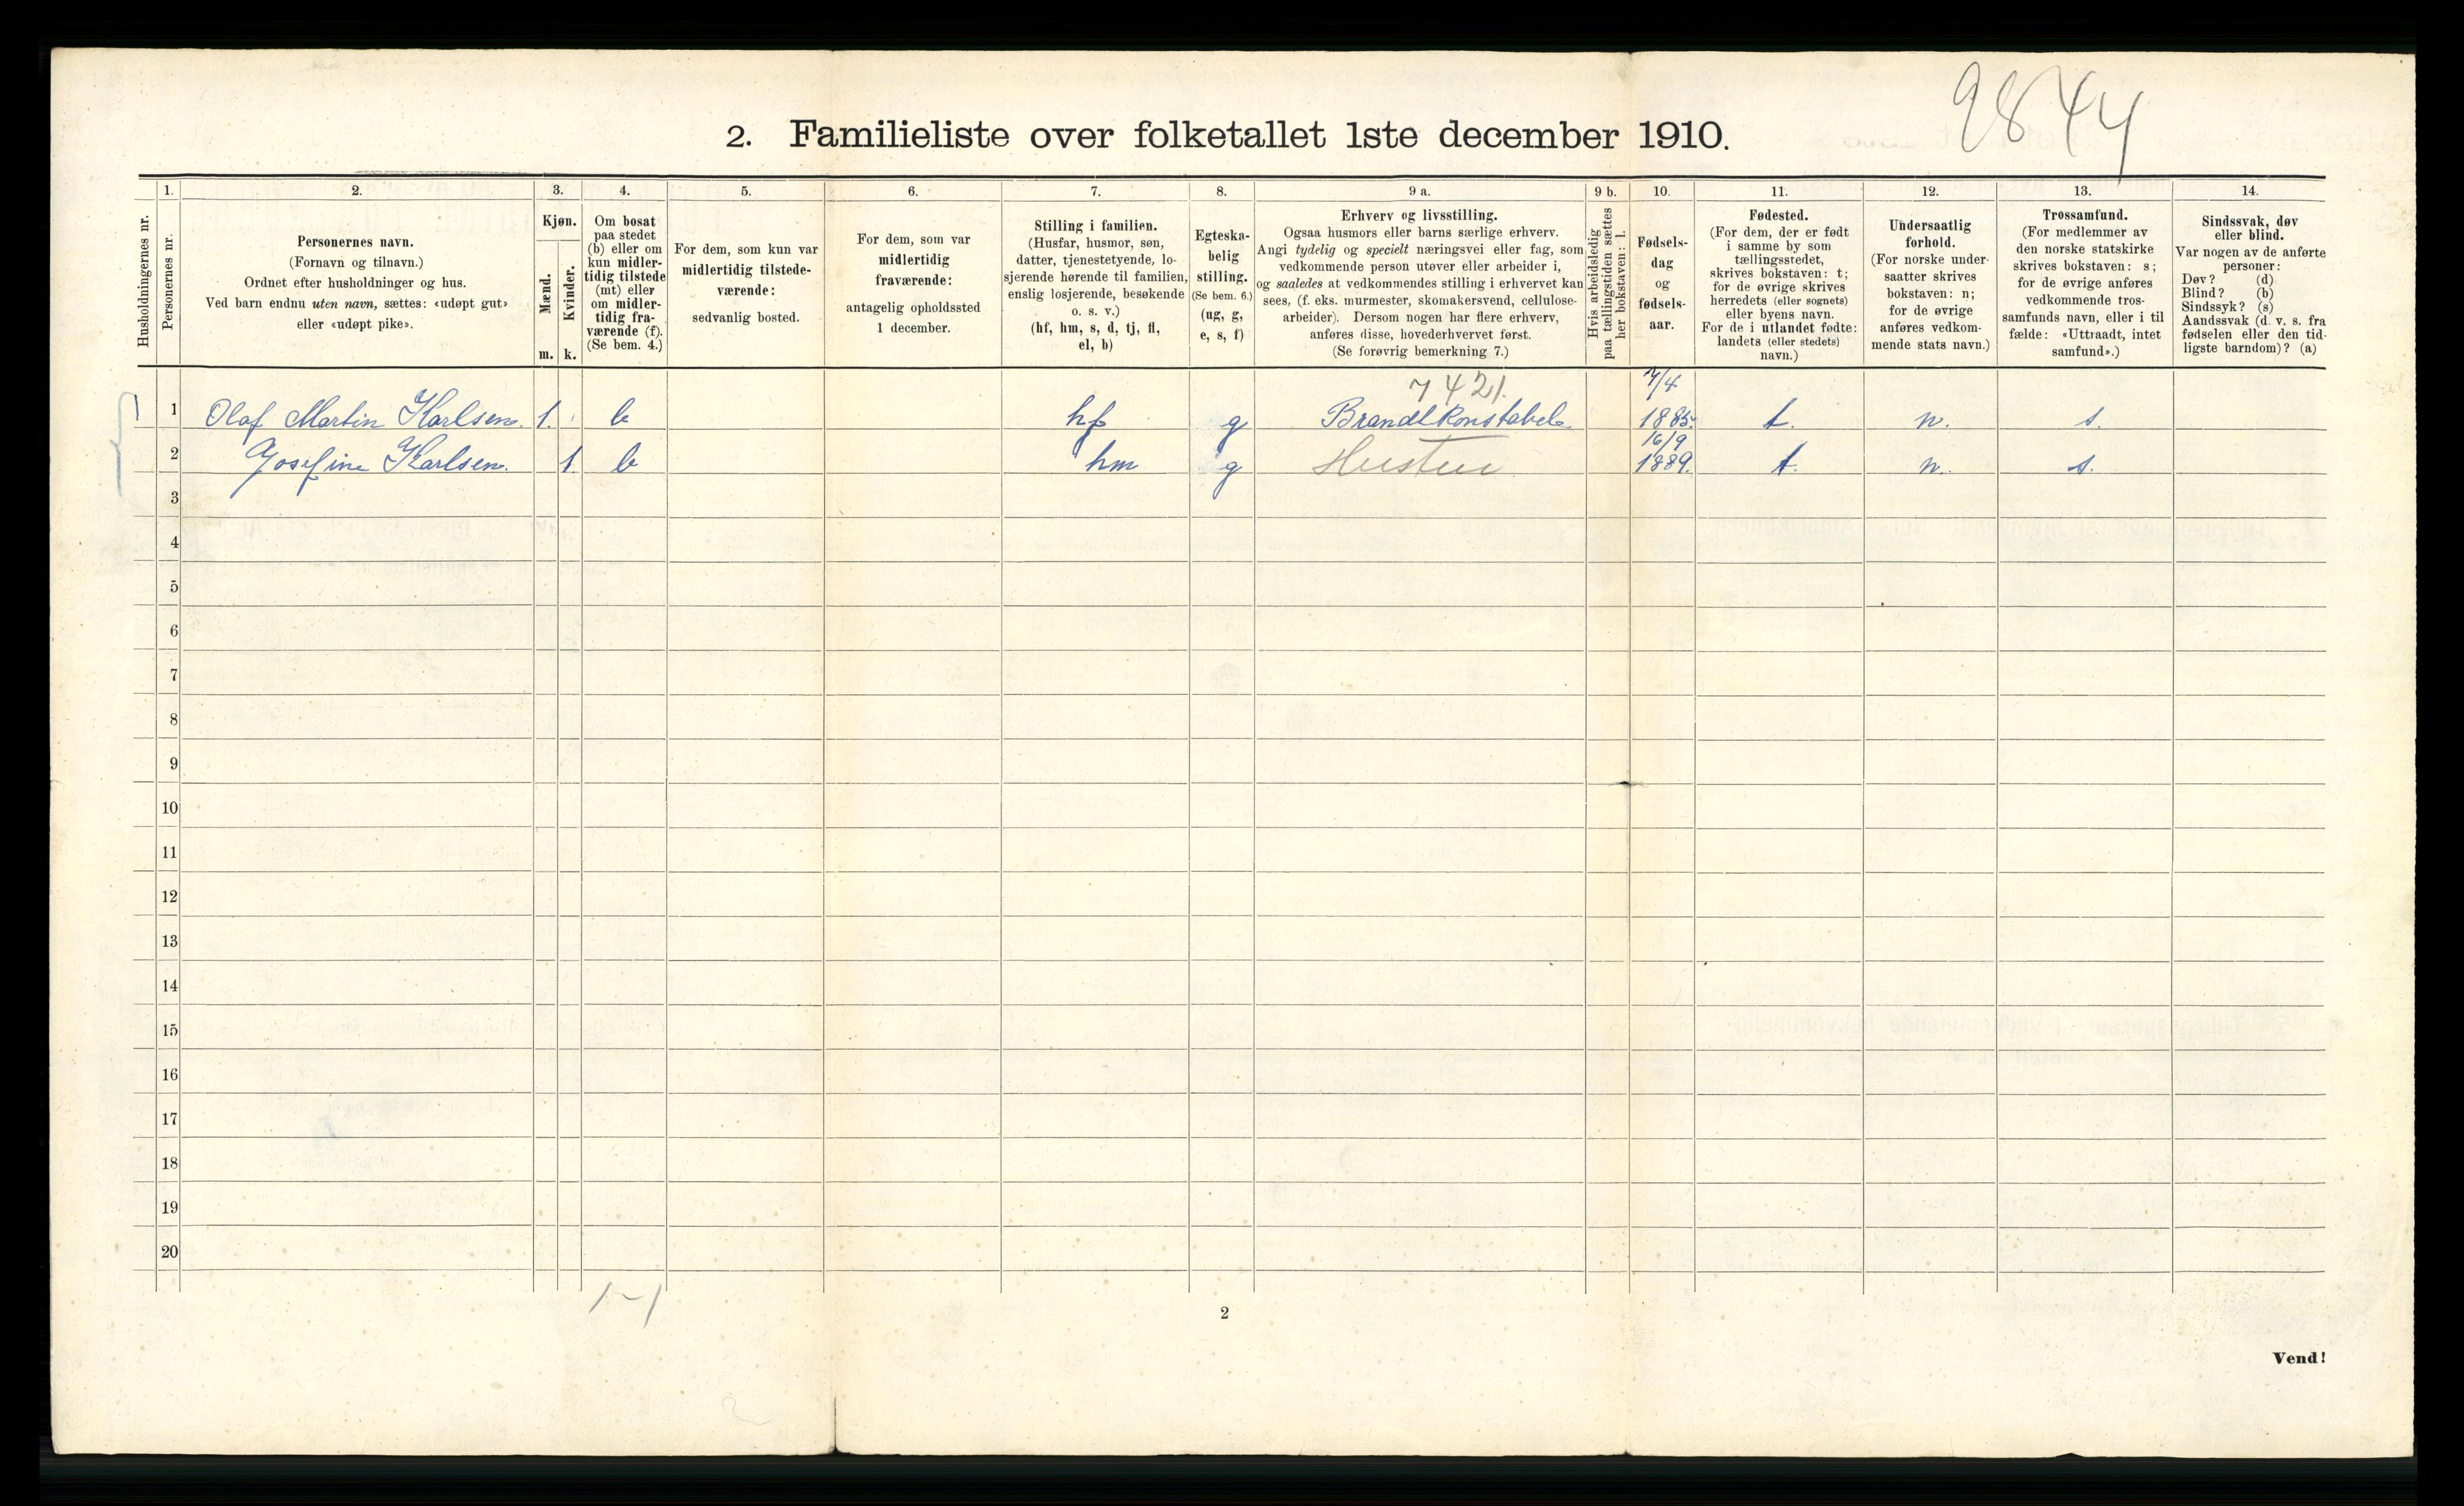 9844
2. Familieliste over folketallet 1ste december 1910.
Husholdningernes nr.
1.
Personernes nr.
2.
Personernes navn.
(Fornavn og tilnavn.)
Ordnet efter husholdninger og hus.
Ved barn endnu uten navn, sættes: «udøpt gut»
eller «udøpt pike».
3.
Kjøn.
Mænd.
Kvinder.
m. k.
4.
Om bosat
paa stedet
(b) eller om
kun midler-
tidig tilstede
(mt) eller
om midler-
tidig fra-
værende (f).
(Se bem. 4.)
5.
For dem, som kun var
midlertidig tilstede-
værende:
sedvanlig bosted.
6.
For dem, som var
midlertidig
fraværende:
antagelig opholdssted
1 december.
7.
Stilling i familien.
(Husfar, husmor, søn,
datter, tjenestetyende, lo-
sjerende hørende til familien,
enslig losjerende, besøkende
o. s. v.)
(hf, hm, s, d, tj, fl,
el, b)
8.
Egteska-
belig
stilling.
(Se bem. 6.)
(ug, g,
e, s, f)
9 a.
Erhverv og livsstilling.
Ogsaa husmors eller barns særlige erhverv.
Angi tydelig og specielt næringsvei eller fag, som
vedkommende person utøver eller arbeider i,
og saaledes at vedkommendes stilling i erhvervet kan
sees, (f. eks. murmester, skomakersvend, cellulose-
arbeider). Dersom nogen har flere erhverv,
anføres disse, hovederhvervet først.
(Se forøvrig bemerkning 7.)
9 b.
Hvis arbeidsledig
paa tællingstiden sættes
her bokstaven: l.
10.
Fødsels-
dag
og
fødsels-
aar.
11.
Fødested.
(For dem, der er født
i samme by som
tællingsstedet,
skrives bokstaven: t;
for de øvrige skrives
herredets (eller sognets)
eller byens navn.
For de i utlandet fødte:
landets (eller stedets)
navn.)
12.
Undersaatlig
forhold.
(For norske under-
saatter skrives
bokstaven: n;
for de øvrige
anføres vedkom-
mende stats navn.)
13.
Trossamfund.
(For medlemmer av
den norske statskirke
skrives bokstaven: s;
for de øvrige anføres
vedkommende tros-
samfunds navn, eller i til
fælde: «Uttraadt, intet
samfund».)
14.
Sindssvak, døv
eller blind.
Var nogen av de anførte
personer:
Døv? (d)
Blind? (b)
Sindssyk? (s)
Aandssvak (d. v. s. fra
fødselen eller den tid-
ligste barndom)? (a)
7421. 7/4
1 1 Olaf Martin Karlsen. 1. b hf g Brandkonstabel 1885. t. n. s.
16/9
2 Josefine Karlsen. 1. b hm g Hustru 1889. t. n. s.
3
4
5
6
7
8
9
10
11
12
13
14
15
16
17
18
19
20
1-1
2
Vend!